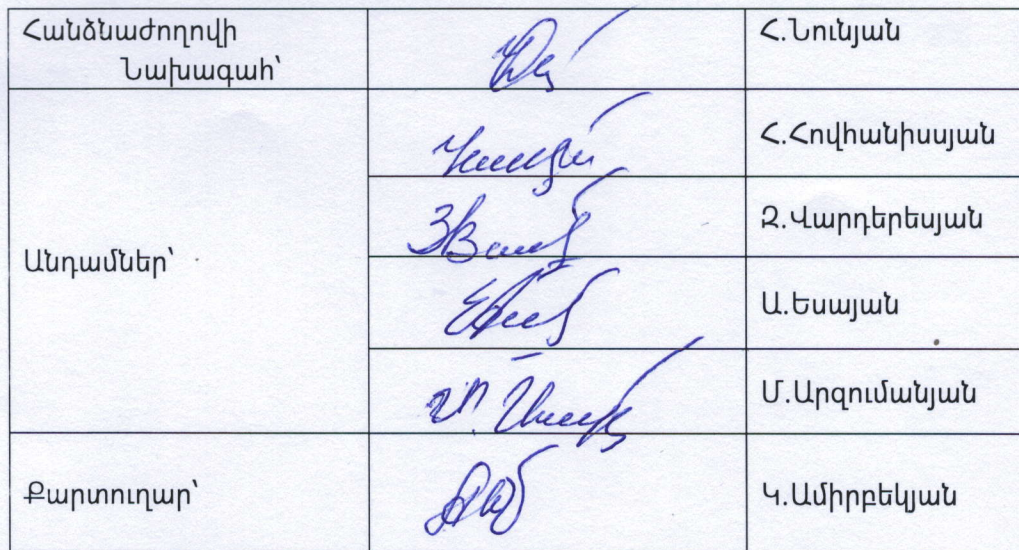 Հանձնաժողովի
Նախագահ՝
Հ.Նունյան
Հ.Հովհաննիսյան
Անդամներ՝
Զ.Վարդերեսյան
Ա.Եսայան
Մ.Արզումանյան
Քարտուղար՝
Կ.Ամիրբեկյան